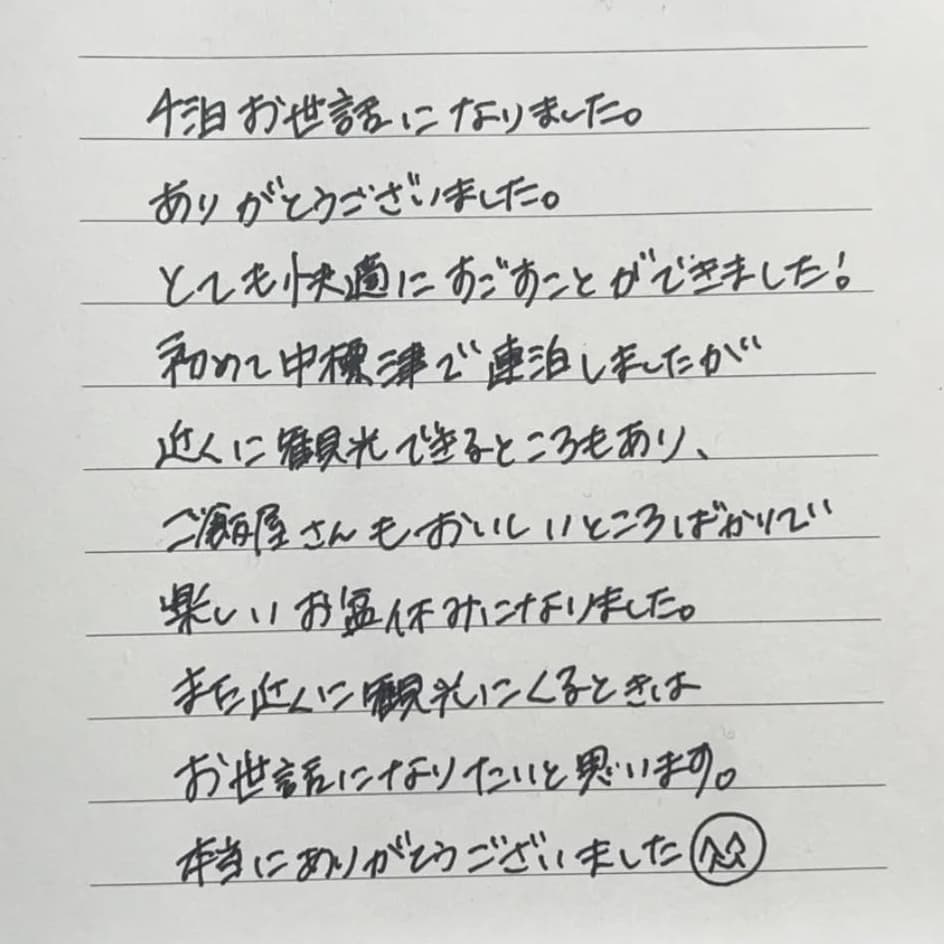 4泊お世話になりました。
ありがとうございました。
とても快適にすごすことができました!
初めて中標津で連泊しましたが
近くに観光できるところもあり、
ご飯屋さんもおいしいところばかりで
楽しいお盆休みになりました。
また近くに観光にくるときは
お世話になりたいと思います。
本当にありがとうございました